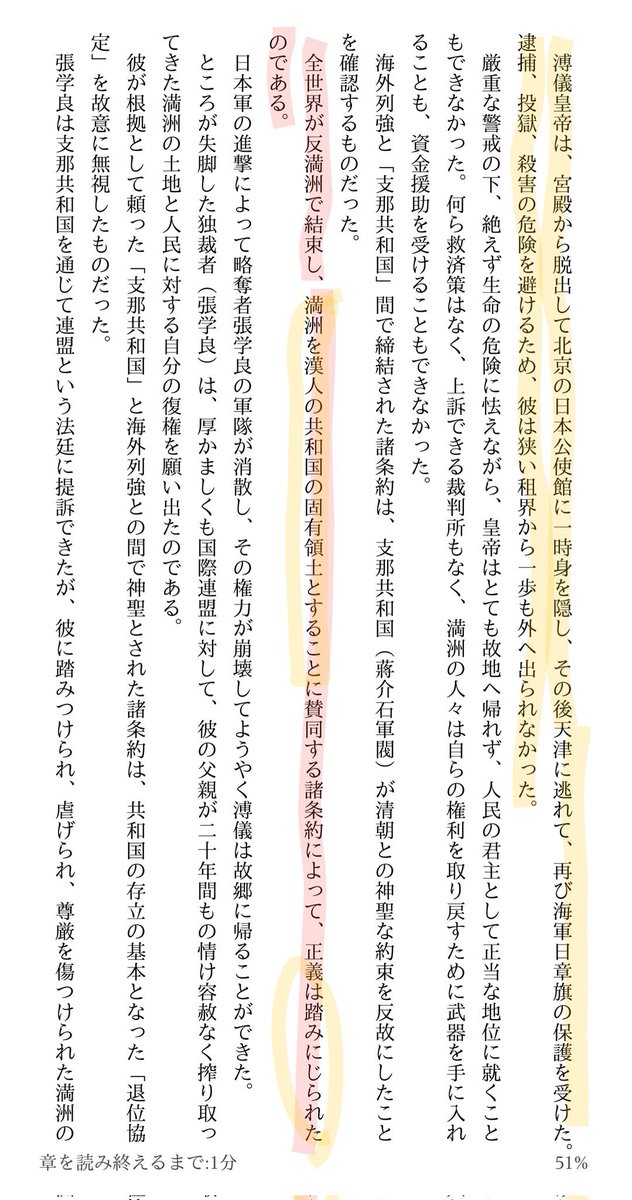 溥儀皇帝は、宮殿から脱出して北京の日本公使館に一時身を隠し、その後天津に逃れて、再び海軍日章旗の保護を受けた。
逮捕、投獄、殺害の危険を避けるため、彼は狭い租界から一歩も外へ出られなかった。
厳重な警戒の下、絶えず生命の危険に怯えながら、皇帝はとても故地へ帰れず、人民の君主として正当な地位に就くこと
もできなかった。何ら救済策はなく、上訴できる裁判所もなく、満洲の人々は自らの権利を取り戻すために武器を手に入れ
ることも、資金援助を受けることもできなかった。
海外列強と「支那共和国」間で締結された諸条約は、支那共和国（蔣介石軍閥）が清朝との神聖な約束を反故にしたこと
を確認するものだった。
全世界が反満洲で結束し、満洲を漢人の共和国の固有領土とすることに賛同する諸条約によって、正義は踏みにじられた
のである。
日本軍の進撃によって略奪者張学良の軍隊が消散し、その権力が崩壊してようやく溥儀は故郷に帰ることができた。
ところが失脚した独裁者（張学良）は、厚かましくも国際連盟に対して、彼の父親が二十年間もの情け容赦なく搾り取っ
てきた満洲の土地と人民に対する自分の復権を願い出たのである。
彼が根拠として頼った「支那共和国」と海外列強との間で神聖とされた諸条約は、共和国の存立の基本となった「退位協
定」を故意に無視したものだった。
張学良は支那共和国を通じて連盟という法廷に提訴できたが、彼に踏みつけられ、虐げられ、尊厳を傷つけられた満洲の
章を読み終えるまで:1分
51%